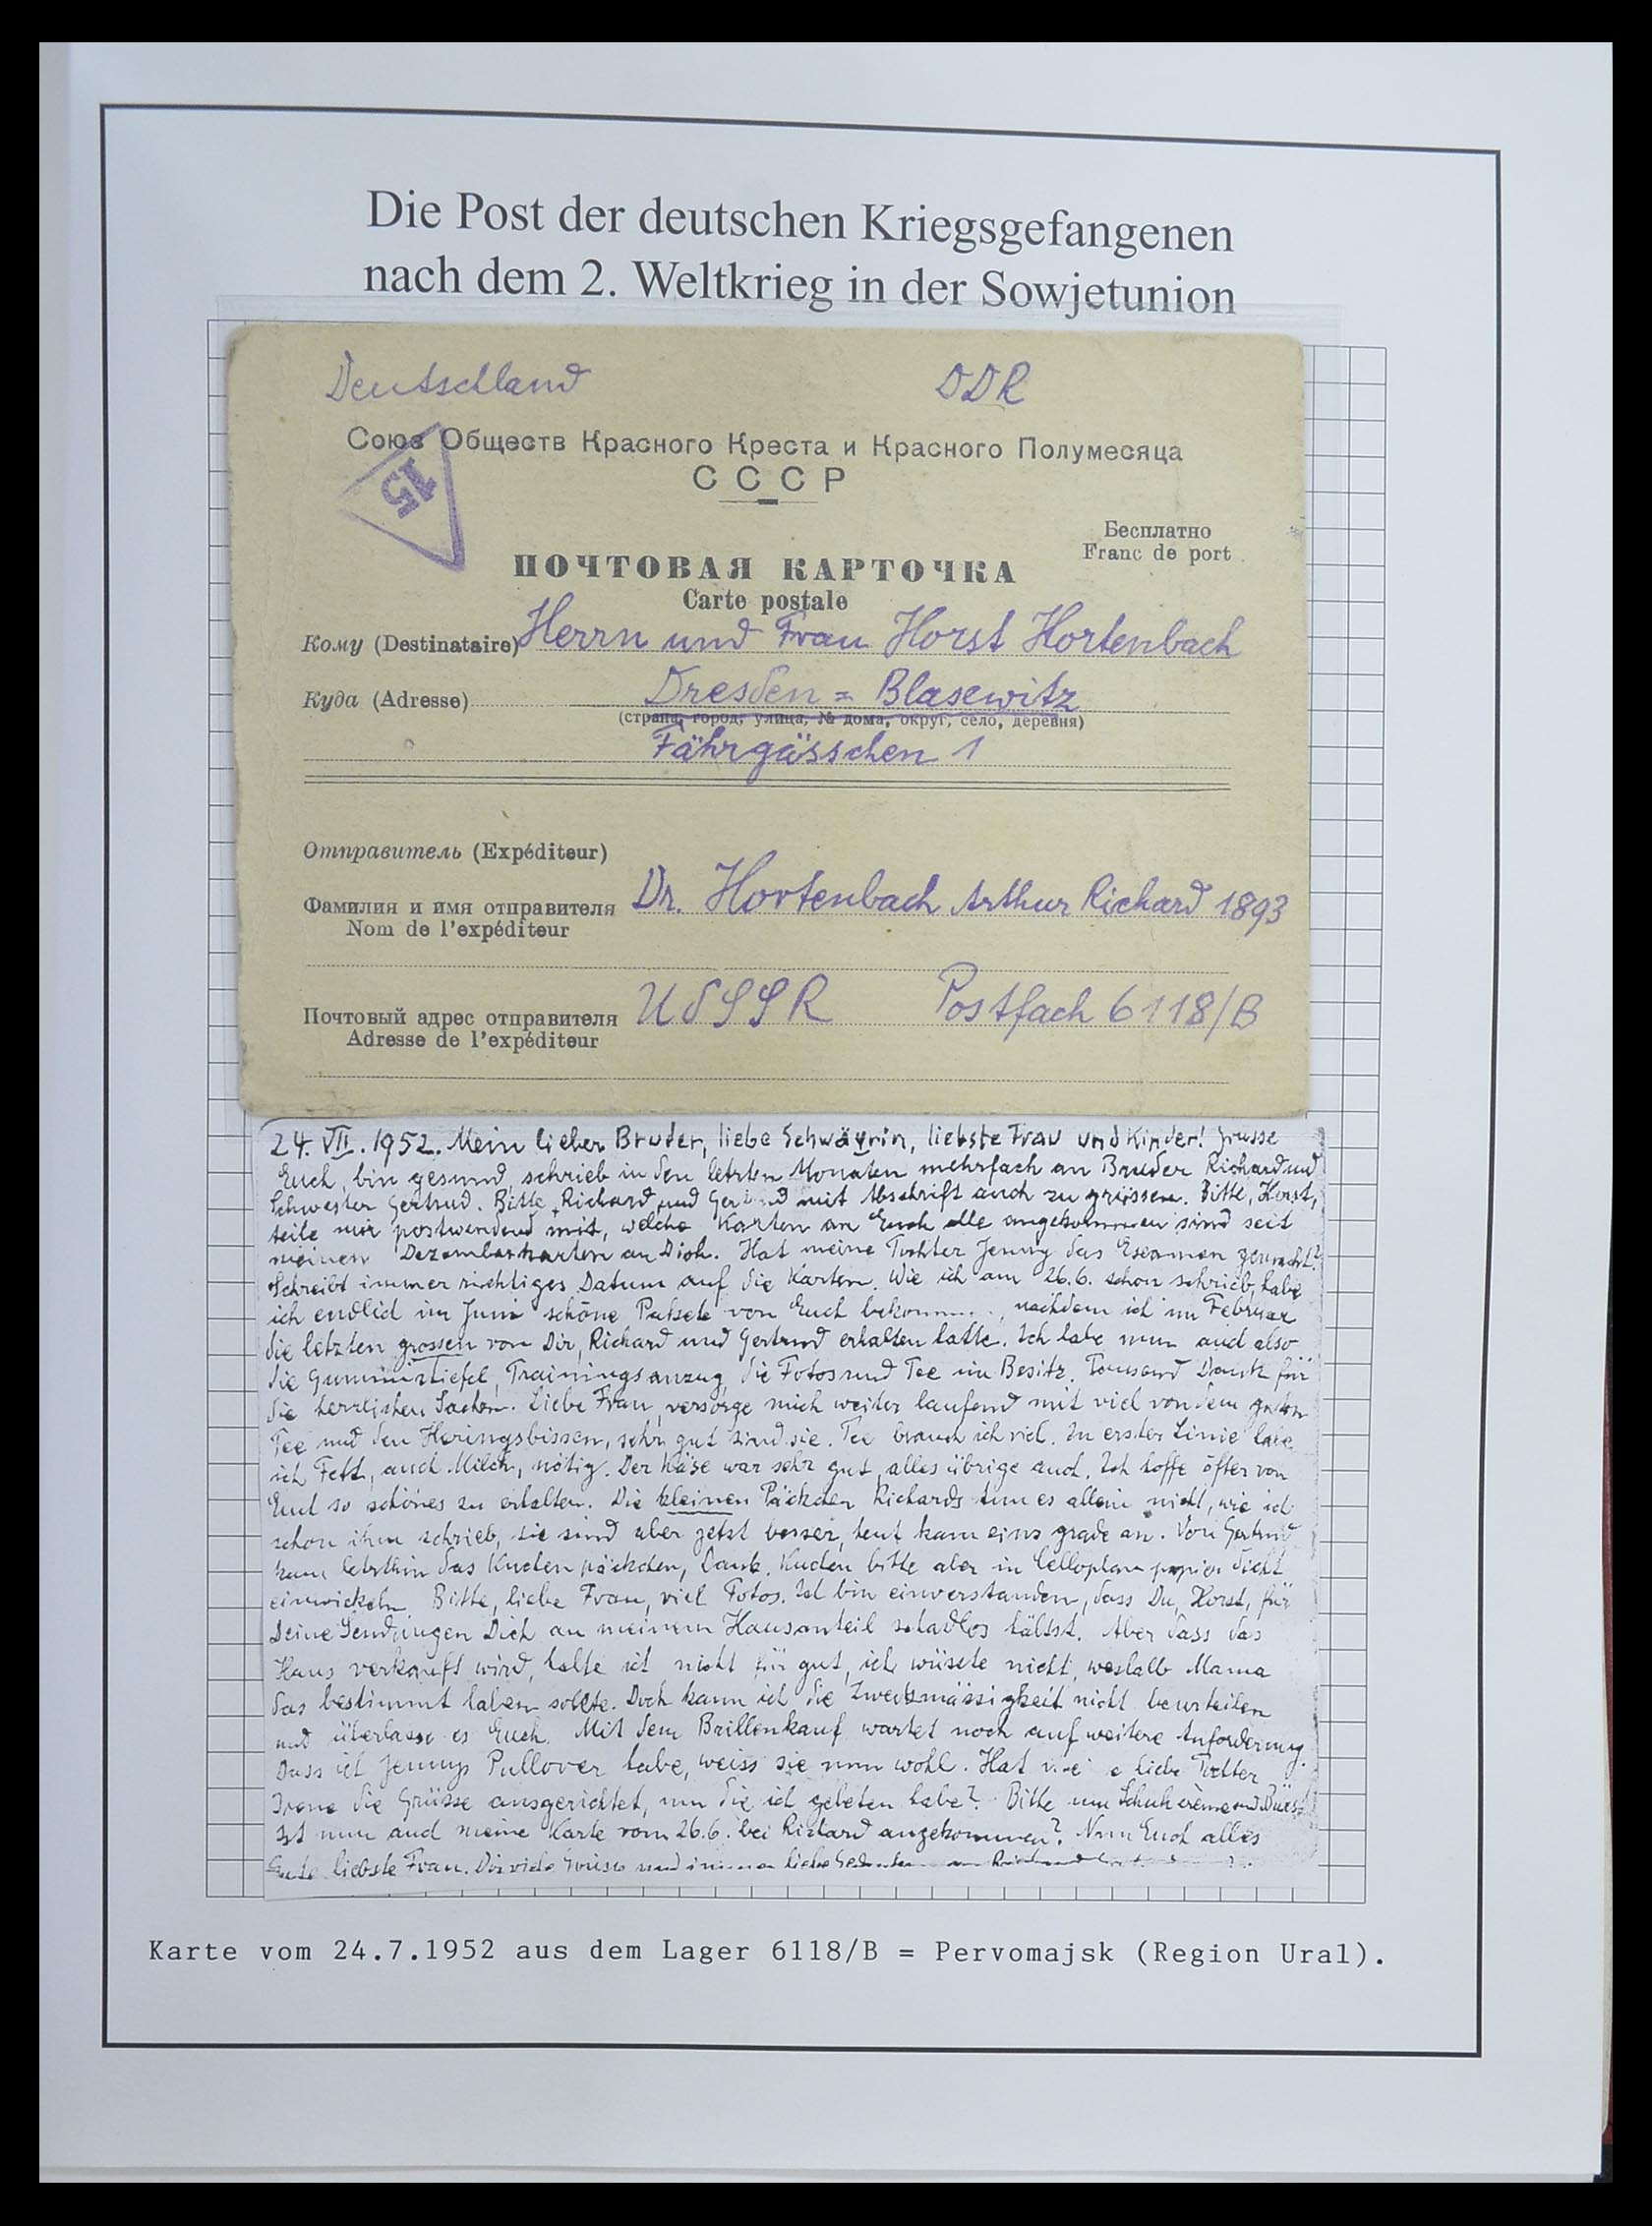 Die Post der deutschen Kriegsgefangenen
nach dem 2. Weltkrieg in der Sowjetunion
Deutschland DDR
Союз Обществ Красного Креста и Красного Полумесяца
СССР
15
Бесплатно
Franc de port
ПОЧТОВАЯ КАРТОЧКА
Carte postale
Кому (Destinataire) Herrn und Frau Horst Hortenbach
Куда (Adresse) Dresden = Blasewitz
(страна, город, улица, № дома, округ, село, деревня)
Fährgässchen 1
Отправитель (Expéditeur)
Фамилия и имя отправителя Dr. Hortenbach Arthur Richard 1893
Nom de l'expéditeur
Почтовый адрес отправителя UdSSR Postfach 6118/B
Adresse de l'expéditeur
24. VII. 1952. Mein lieber Bruder, liebe Schwägrin, liebste Frau und Kinder! Grüsse
Euch, bin gesund, schrieb in den letzten Monaten mehrfach an Bruder Richard und
Schwester Gertrud. Bitte, Richard und Gertrud mit Abschrift auch zu grüssen. Bitte, Horst,
teile mir postwendend mit, welche Karten an Euch alle angekommen sind seit
meinen Dezemberkarten an Dich. Hat meine Tochter Jenny das Examen gemacht?
Schreibt immer richtiges Datum auf die Karten. Wie ich am 26.6. schon schrieb, habe
ich endlich im Juni schöne Pakete von Euch bekommen, nachdem ich im Februar
die letzten grossen von Dir, Richard und Gertrud erhalten hatte. Ich habe nun auch also
die Gummistiefel, Trainingsanzug, die Fotos und Tee im Besitz. Tausend Dank für
die herrlichen Sachen. Liebe Frau, versorge mich weiter laufend mit viel von dem guten
Tee und den Heringsbissen, sehr gut sind sie. Tee brauch ich viel. In erster Linie habe
ich Fett, auch Milch, nötig. Der Käse war sehr gut, alles übrige auch. Ich hoffe öfter von
Euch so schönes zu erhalten. Die kleinen Päckchen Richards tun es allein nicht, wie ich
schon ihm schrieb, sie sind aber jetzt besser, heut kam eins grade an. Von Gertrud
kam letzthin das Kuchenpäckchen, Dank. Kuchen bitte aber in Cellophanpapier dicht
einwickeln. Bitte, liebe Frau, viel Fotos. Ich bin einverstanden, dass Du, Horst, für
Deine Sendungen Dich an meinem Hausanteil schadlos hältst. Aber dass das
Haus verkauft wird, halte ich nicht für gut, ich wüsste nicht, weshalb Mama
das bestimmt haben sollte. Doch kann ich die Zweckmässigkeit nicht beurteilen
und überlasse es Euch. Mit dem Brillenkauf wartet noch auf weitere Anforderung.
Dass ich Jennys Pullover habe, weiss sie nun wohl. Hat liebe Tochter
Irene die Grüsse ausgerichtet, um die ich gebeten habe? Bitte um Schuhcreme und
Ist nun auch meine Karte vom 26.6. bei Richard angekommen? Nun Euch alles
Gute liebste Frau. Dir viele Grüsse und immer liebe Gedenken
Karte vom 24.7.1952 aus dem Lager 6118/B = Pervomajsk (Region Ural).